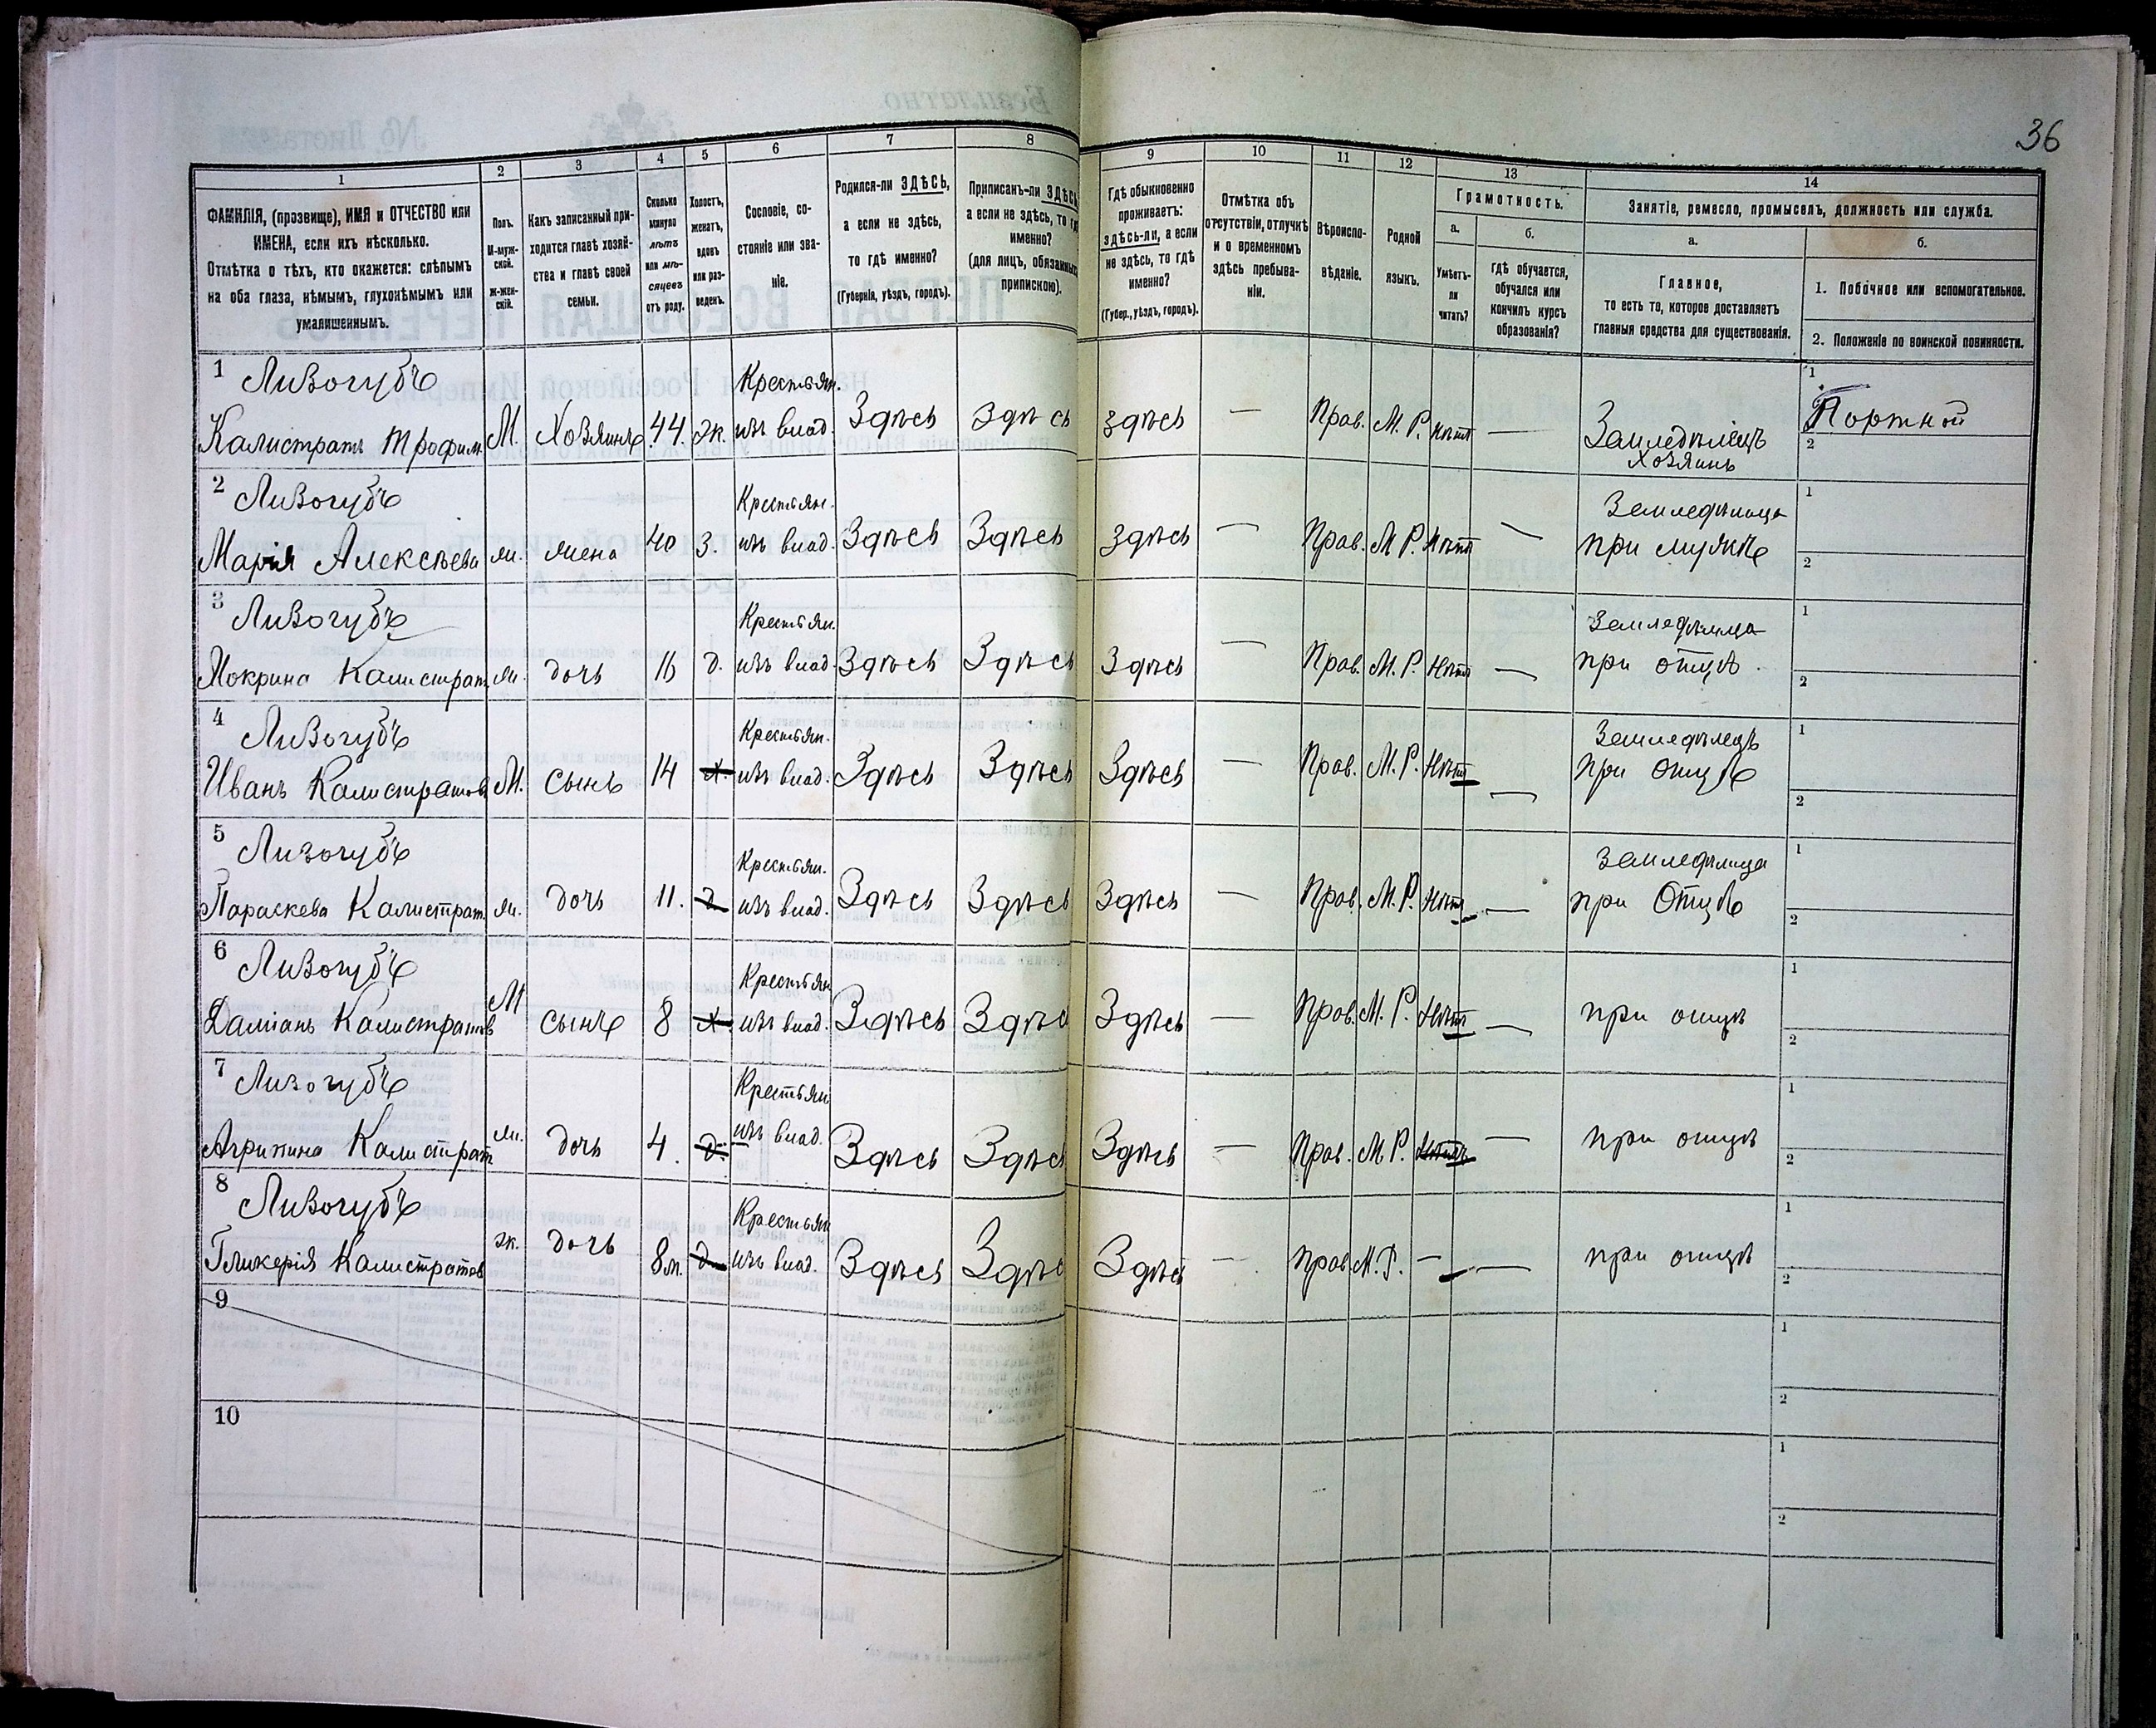 36
1
2
3
4
5
6
7
8
9
10
11
12
13
14
ФАМИЛІЯ, (прозвище), ИМЯ и ОТЧЕСТВО или
ИМЕНА, если ихъ нѣсколько.
Отмѣтка о тѣхъ, кто окажется: слѣпымъ
на оба глаза, нѣмымъ, глухонѣмымъ или
умалишеннымъ.
Полъ.
М-муж-
ской.
Ж-жен-
скій.
Какъ записанный при-
ходится главѣ хозяй-
ства и главѣ своей
семьи.
Сколько
минуло
лѣтъ
или мѣ-
сяцевъ
отъ роду.
Холостъ,
женатъ,
вдовъ
или раз-
веденъ.
Сословіе, со-
стояніе или зва-
ніе.
Родился-ли ЗДѢСЬ,
а если не здѣсь,
то гдѣ именно?
(Губернія, уѣздъ, городъ).
Приписанъ-ли ЗДѢСЬ,
а если не здѣсь, то гдѣ
именно?
(для лицъ, обязанныхъ
припиской).
Гдѣ обыкновенно
проживаетъ:
здѣсь-ли, а если
не здѣсь, то гдѣ
именно?
(Губер., уѣздъ, городъ).
Отмѣтка объ
отсутствіи, отлучкѣ
и о временномъ
здѣсь пребыва-
ніи.
Вѣроиспо-
вѣданіе.
Родной
языкъ.
Грамотность.
а.
Умѣетъ-
ли
читать?
б.
гдѣ обучается,
обучался или
кончилъ курсъ
образованія?
Занятіе, ремесло, промыселъ, должность или служба.
а.
Главное,
то есть то, которое доставляетъ
главныя средства для существованія.
б.
1. Побочное или вспомогательное.
2. Положеніе по воинской повинности.
1 Лизогубъ Крестьян. 1
Калистратъ Трофим. М. Хозяинъ 44. Ж. изъ влад. Здѣсь Здѣсь здѣсь — Прав. М. Р. Нѣтъ — Земледѣлецъ Портной
хозяинъ 2
2 Лизогубъ Крестьян. Земледѣлица 1
Марія Алексѣева ж. жена 40 З. изъ влад. Здѣсь Здѣсь здѣсь — Прав. М. Р. Нѣтъ — при мужѣ 2
3 Лизогубъ Крестьян. Земледѣлица 1
Мокрина Калистрат. ж. дочь 16 д. изъ влад. Здѣсь Здѣсь Здѣсь — Прав. М. Р. Нѣтъ — при отцѣ. 2
4 Лизогубъ Крестьян. Земледѣлецъ 1
Иванъ Калистратов. М. сынъ 14 х. изъ влад. Здѣсь Здѣсь Здѣсь — Прав. М. Р. Нѣтъ — при отцѣ 2
5 Лизогубъ Крестьян. Земледѣлица 1
Параскева Калистрат. ж. дочь 11. д. изъ влад. Здѣсь Здѣсь Здѣсь — Прав. М. Р. Нѣтъ — при Отцѣ 2
6 Лизогубъ Крестьян 1
Даміанъ Калистратов М сынъ 8 х. изъ влад. Здѣсь Здѣсь Здѣсь — Прав. М. Р. Нѣтъ — при отцѣ 2
7 Лизогубъ Крестьян 1
Агрипина Калистрат ж. дочь 4. д. изъ влад. Здѣсь Здѣсь Здѣсь — Прав. М. Р. Нѣтъ — при отцѣ 2
8 Лизогубъ Крестьян 1
Гликерія Калистратов ж. дочь 8м. д. изъ влад. Здѣсь Здѣсь Здѣсь — Прав. М. Р. — — при отцѣ 2
9 1
2
10 1
2